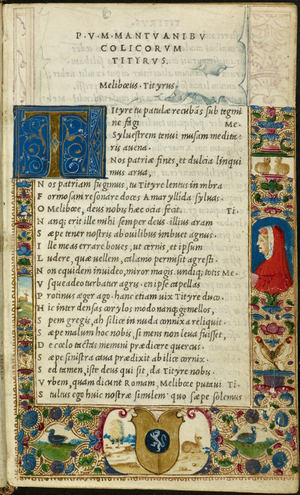 P. V. M. MANTVANI BV
COLICORVM
TITYRVS.
Melibœus. Tityrus.
Tityre tu patulæ recubãs sub tegmi
ne fagi Me.
Syluestrem tenui musam medita-
ris auena.
Nos patriæ fines, et dulcia linqui
mus arua,
Nos patriam fugimus, tu Tityre lentus in vmbra
Formosam resonare doces Amaryllida syluas.
O Melibœe, deus nobis hæc ocia fecit. Ti.
Nanq; erit ille mihi semper deus, illius aram
Sæpe tener nostris ab ouilibus imbuet agnus.
Ille meas errare boues, ut cernis, et ipsum
Ludere, quæ uellem, calamo permisit agresti.
Non equidem inuideo, miror magis. undiq; totis Me.
Vsque adeo turbatur agris. en ipse capellas
Protinus æger ago. hanc etiam uix Tityre duco.
Hic inter densas corylos modo nanq; gemellos,
Spem gregis, ah silice in nuda connixa reliquit.
Sæpe malum hoc nobis, si mens non leua fuisset,
De cœlo tactas memini prædicere quercus.
Sæpe sinistra caua prædixit ab ilice cornix.
Sed tamen, iste deus qui sit, da Tityre nobis.
Vrbem, quam dicunt Romam, Melibœe putaui Ti.
Stultus ego huic nostræ similem, quo sæpe solemus